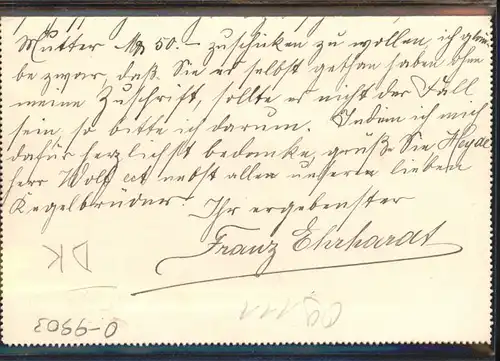 Mutter M 50.– zuschicken zu wollen, ich glau-
be zwar, daß Sie es selbst gethan haben ohne
meine Zuschrift, sollte es nicht der Fall
sein, so bitte ich darum. Indem ich mich
dafür herzlichst bedanke, grüße Sie
Herr Wolf ect nebst allen unseren lieben
Kegelbrüder. Ihr ergebenster
Franz Ehrhardt
DK
0-9903